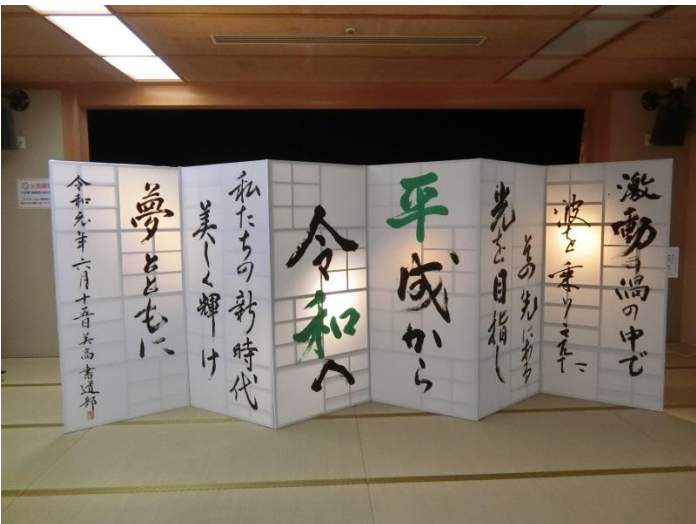 激動の渦の中で
波を乗りこえた
その先にある
光を目指し
平成から
令和へ
私たちの新時代
美しく輝け
夢とともに
令和元年 六月十五日 美高 書道部